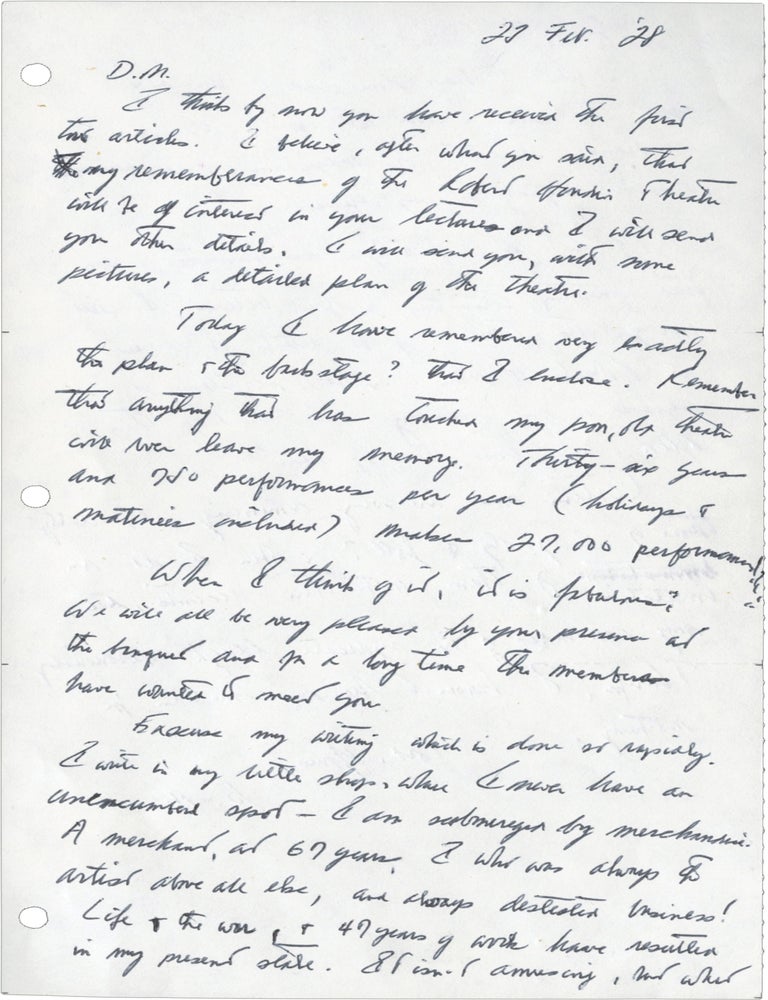 27 Fev. '28
D.M.
I think by now you have received the first
two articles. I believe, after what you said, that
my rememberances of the Robert Houdin Theatre
will be of interest in your lectures and I will send
you other details. I will send you, with some
pictures, a detailed plan of the theatre.
Today I have remembered very exactly
the plan & the backstage? that I enclose. Remember
that anything that has touched my poor, old theatre
will never leave my memory. Thirty-six years
and 750 performances per year (holidays &
matinées included) makes 27,000 performances!
When I think of it, it is fabulous!
We will all be very pleased by your presence at
the banquet and for a long time the members
have wanted to meet you.
Excuse my writing which is done so rapidly.
I write in my little shop, where I never have an
unencumbered spot - I am submerged by merchandise.
A merchant, at 67 years, I who was always the
artist above all else, and always detested business!
Life & the war, & 47 years of work have resulted
in my present state. It isn't amusing, but what